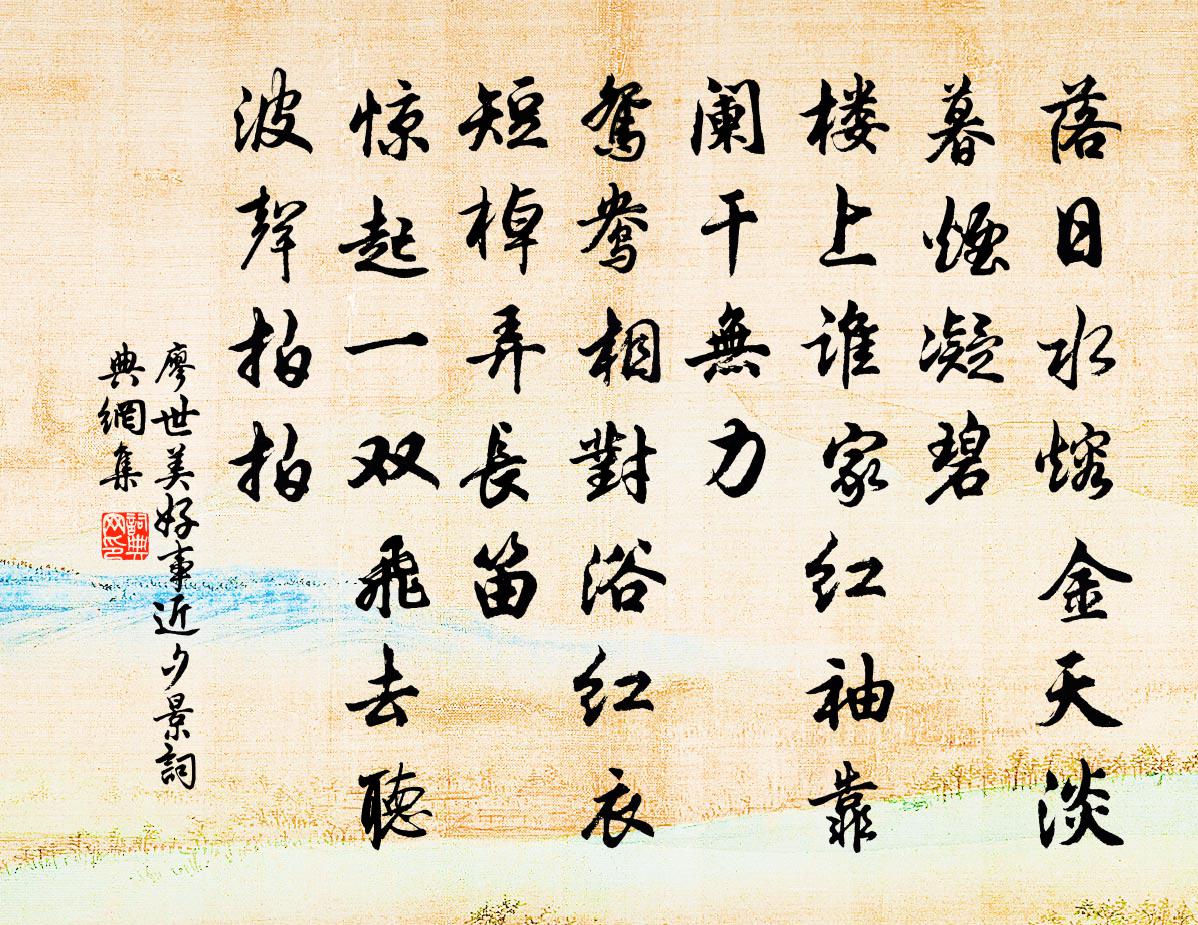 落日水熔金天淡
暮煙凝碧
楼上谁家红袖靠
阑干無力
鸳鸯相對浴红衣
短棹弄長笛
惊起一双飛去聽
波聲拍拍
廖世美好事近夕景詞
典網集
詞典
网印